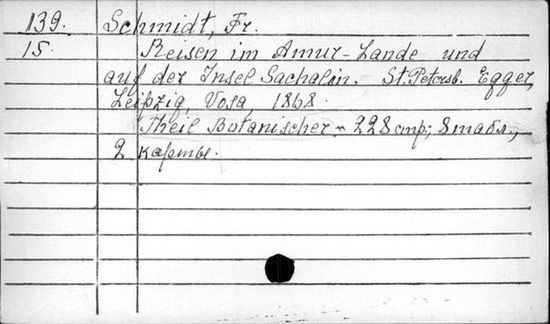 139. Schmidt, Fr.
15. Reisen im Amur-Lande und
auf der Insel Sachalin. St. Petersb. Egger,
Leipzig, Vosa, 1868.
Theil Botanischer - 228 стр; 8 табл.,
2 карты.